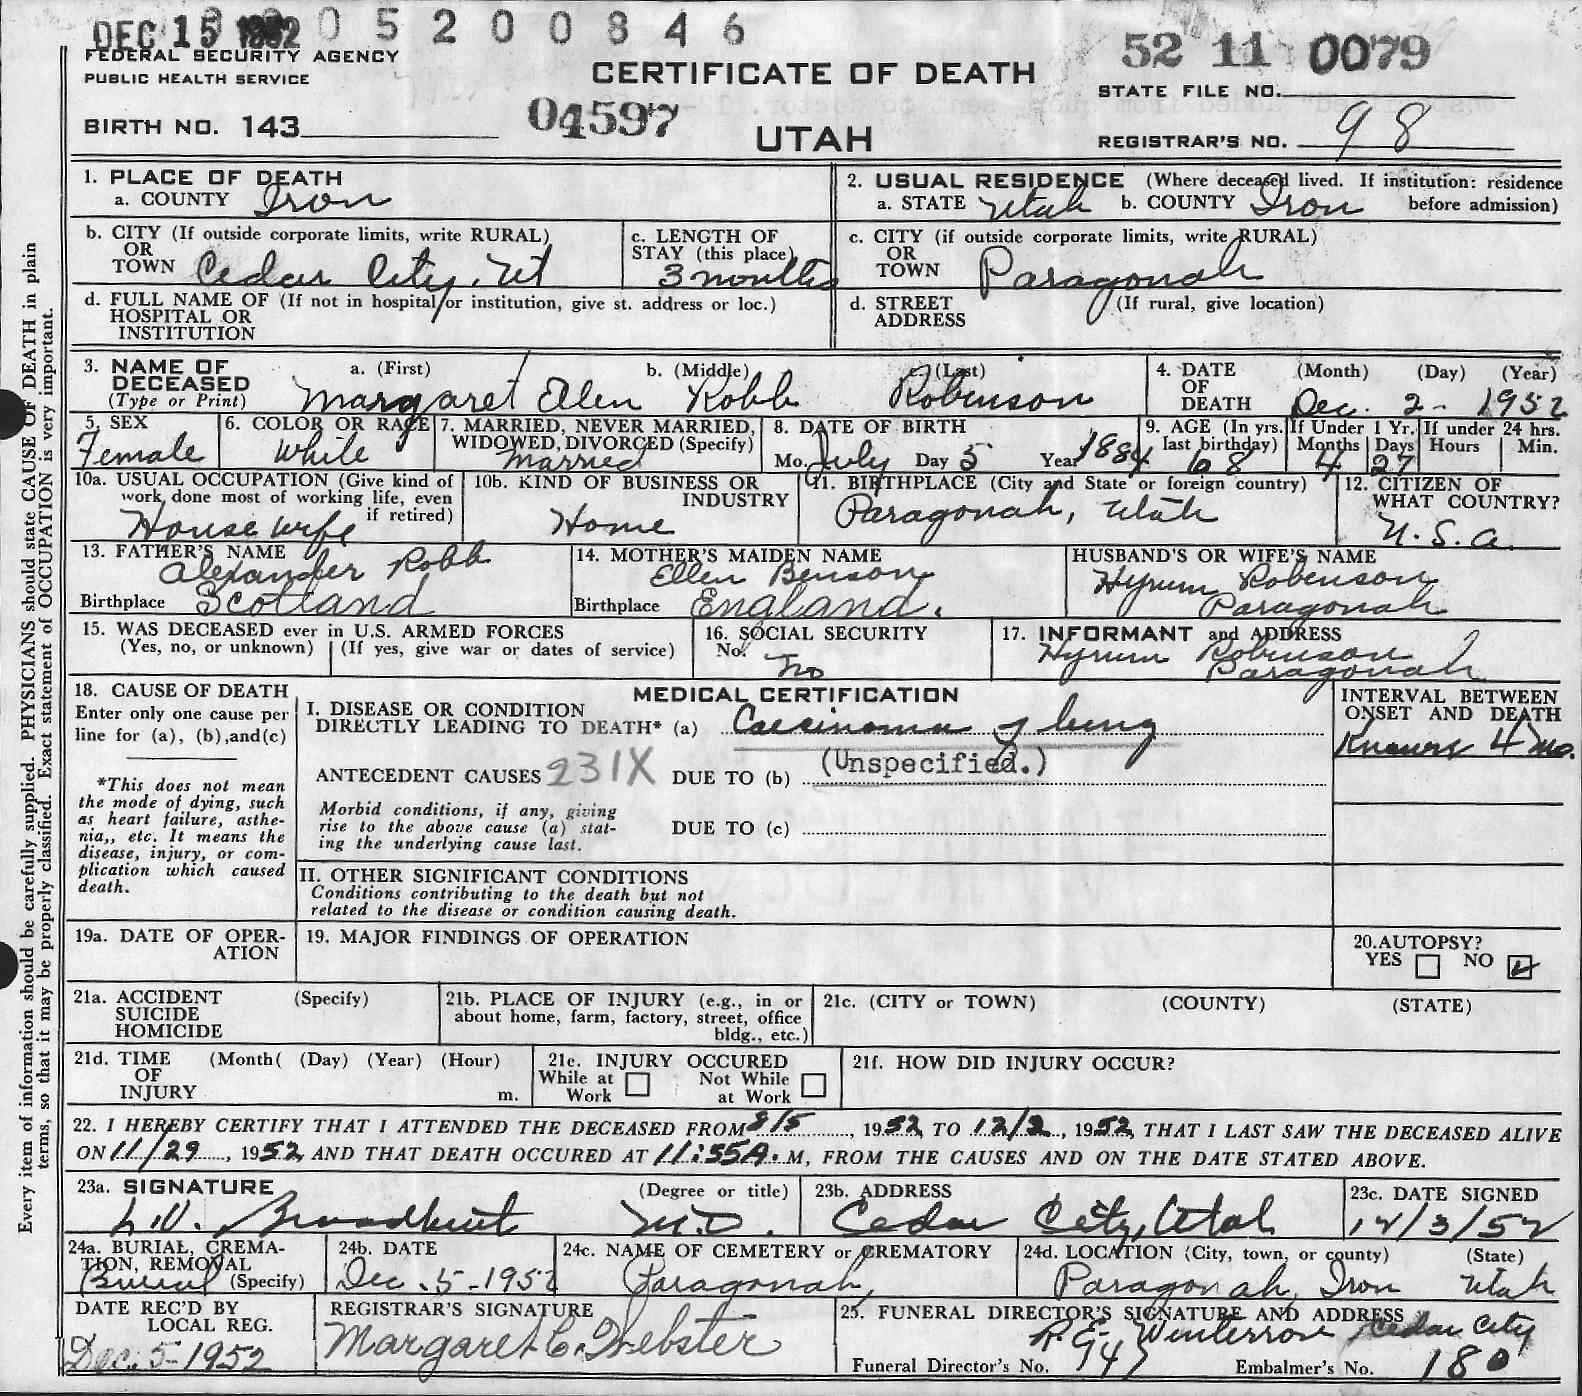 DEC 15 1952 0 5 2 0 0 8 4 6
FEDERAL SECURITY AGENCY
PUBLIC HEALTH SERVICE
CERTIFICATE OF DEATH
52 11 0079
STATE FILE NO.
BIRTH NO. 143
04597
UTAH
REGISTRAR'S NO. 98
Every item of information should be carefully supplied. PHYSICIANS should state CAUSE OF DEATH in plain
terms, so that it may be properly classified. Exact statement of OCCUPATION is very important.
1. PLACE OF DEATH
a. COUNTY Iron
2. USUAL RESIDENCE (Where deceased lived. If institution: residence
a. STATE Utah b. COUNTY Iron before admission)
b. CITY (If outside corporate limits, write RURAL)
OR
TOWN Cedar City, Ut
c. LENGTH OF
STAY (this place)
3 months
c. CITY (if outside corporate limits, write RURAL)
OR
TOWN Paragonah
d. FULL NAME OF (If not in hospital or institution, give st. address or loc.)
HOSPITAL OR
INSTITUTION
d. STREET (If rural, give location)
ADDRESS
3. NAME OF DECEASED (Type or Print)
a. (First) b. (Middle) c. (Last)
Margaret Ellen Robb Robinson
4. DATE OF DEATH (Month) (Day) (Year)
Dec. 2 - 1952
5. SEX
Female
6. COLOR OR RACE
White
7. MARRIED, NEVER MARRIED,
WIDOWED, DIVORCED (Specify)
Married
8. DATE OF BIRTH
Mo. July Day 5 Year 1884
9. AGE (In yrs.
last birthday)
68
If Under 1 Yr.
Months Days
4 27
If under 24 hrs.
Hours Min.
10a. USUAL OCCUPATION (Give kind of
work done most of working life, even
if retired)
House wife
10b. KIND OF BUSINESS OR
INDUSTRY
Home
11. BIRTHPLACE (City and State or foreign country)
Paragonah, Utah
12. CITIZEN OF
WHAT COUNTRY?
U.S.A.
13. FATHER'S NAME
Alexander Robb
Birthplace Scotland
14. MOTHER'S MAIDEN NAME
Ellen Benson
Birthplace England.
HUSBAND'S OR WIFE'S NAME
Hyrum Robinson
Paragonah
15. WAS DECEASED ever in U.S. ARMED FORCES
(Yes, no, or unknown) (If yes, give war or dates of service)
16. SOCIAL SECURITY
No.
No
17. INFORMANT and ADDRESS
Hyrum Robinson
Paragonah
18. CAUSE OF DEATH
Enter only one cause per
line for (a), (b),and(c)
*This does not mean
the mode of dying, such
as heart failure, asthe-
nia,, etc. It means the
disease, injury, or com-
plication which caused
death.
MEDICAL CERTIFICATION
I. DISEASE OR CONDITION
DIRECTLY LEADING TO DEATH* (a) Carcinoma of lung
(Unspecified.)
ANTECEDENT CAUSES 231X DUE TO (b)
Morbid conditions, if any, giving
rise to the above cause (a) stat-
ing the underlying cause last.
DUE TO (c)
INTERVAL BETWEEN
ONSET AND DEATH
Known 4 mo.
II. OTHER SIGNIFICANT CONDITIONS
Conditions contributing to the death but not
related to the disease or condition causing death.
19a. DATE OF OPER-
ATION
19. MAJOR FINDINGS OF OPERATION
20.AUTOPSY?
YES NO
21a. ACCIDENT (Specify)
SUICIDE
HOMICIDE
21b. PLACE OF INJURY (e.g., in or
about home, farm, factory, street, office
bldg., etc.)
21c. (CITY or TOWN) (COUNTY) (STATE)
21d. TIME (Month( (Day) (Year) (Hour)
OF
INJURY m.
21e. INJURY OCCURED
While at Work Not While at Work
21f. HOW DID INJURY OCCUR?
22. I HEREBY CERTIFY THAT I ATTENDED THE DECEASED FROM 8/5, 1952, TO 12/2, 1952, THAT I LAST SAW THE DECEASED ALIVE
ON 11/29, 1952, AND THAT DEATH OCCURED AT 11:55A.M, FROM THE CAUSES AND ON THE DATE STATED ABOVE.
23a. SIGNATURE (Degree or title)
L.V. Broadbent M.D.
23b. ADDRESS
Cedar City, Utah
23c. DATE SIGNED
12/3/52
24a. BURIAL, CREMA-
TION, REMOVAL
Burial (Specify)
24b. DATE
Dec. 5 - 1952
24c. NAME OF CEMETERY or CREMATORY
Paragonah,
24d. LOCATION (City, town, or county) (State)
Paragonah, Iron Utah
DATE REC'D BY
LOCAL REG.
Dec. 5 - 1952
REGISTRAR'S SIGNATURE
Margaret C. Webster
25. FUNERAL DIRECTOR'S SIGNATURE AND ADDRESS
R. E. Winterrose Cedar City
Funeral Director's No. 947 Embalmer's No. 180